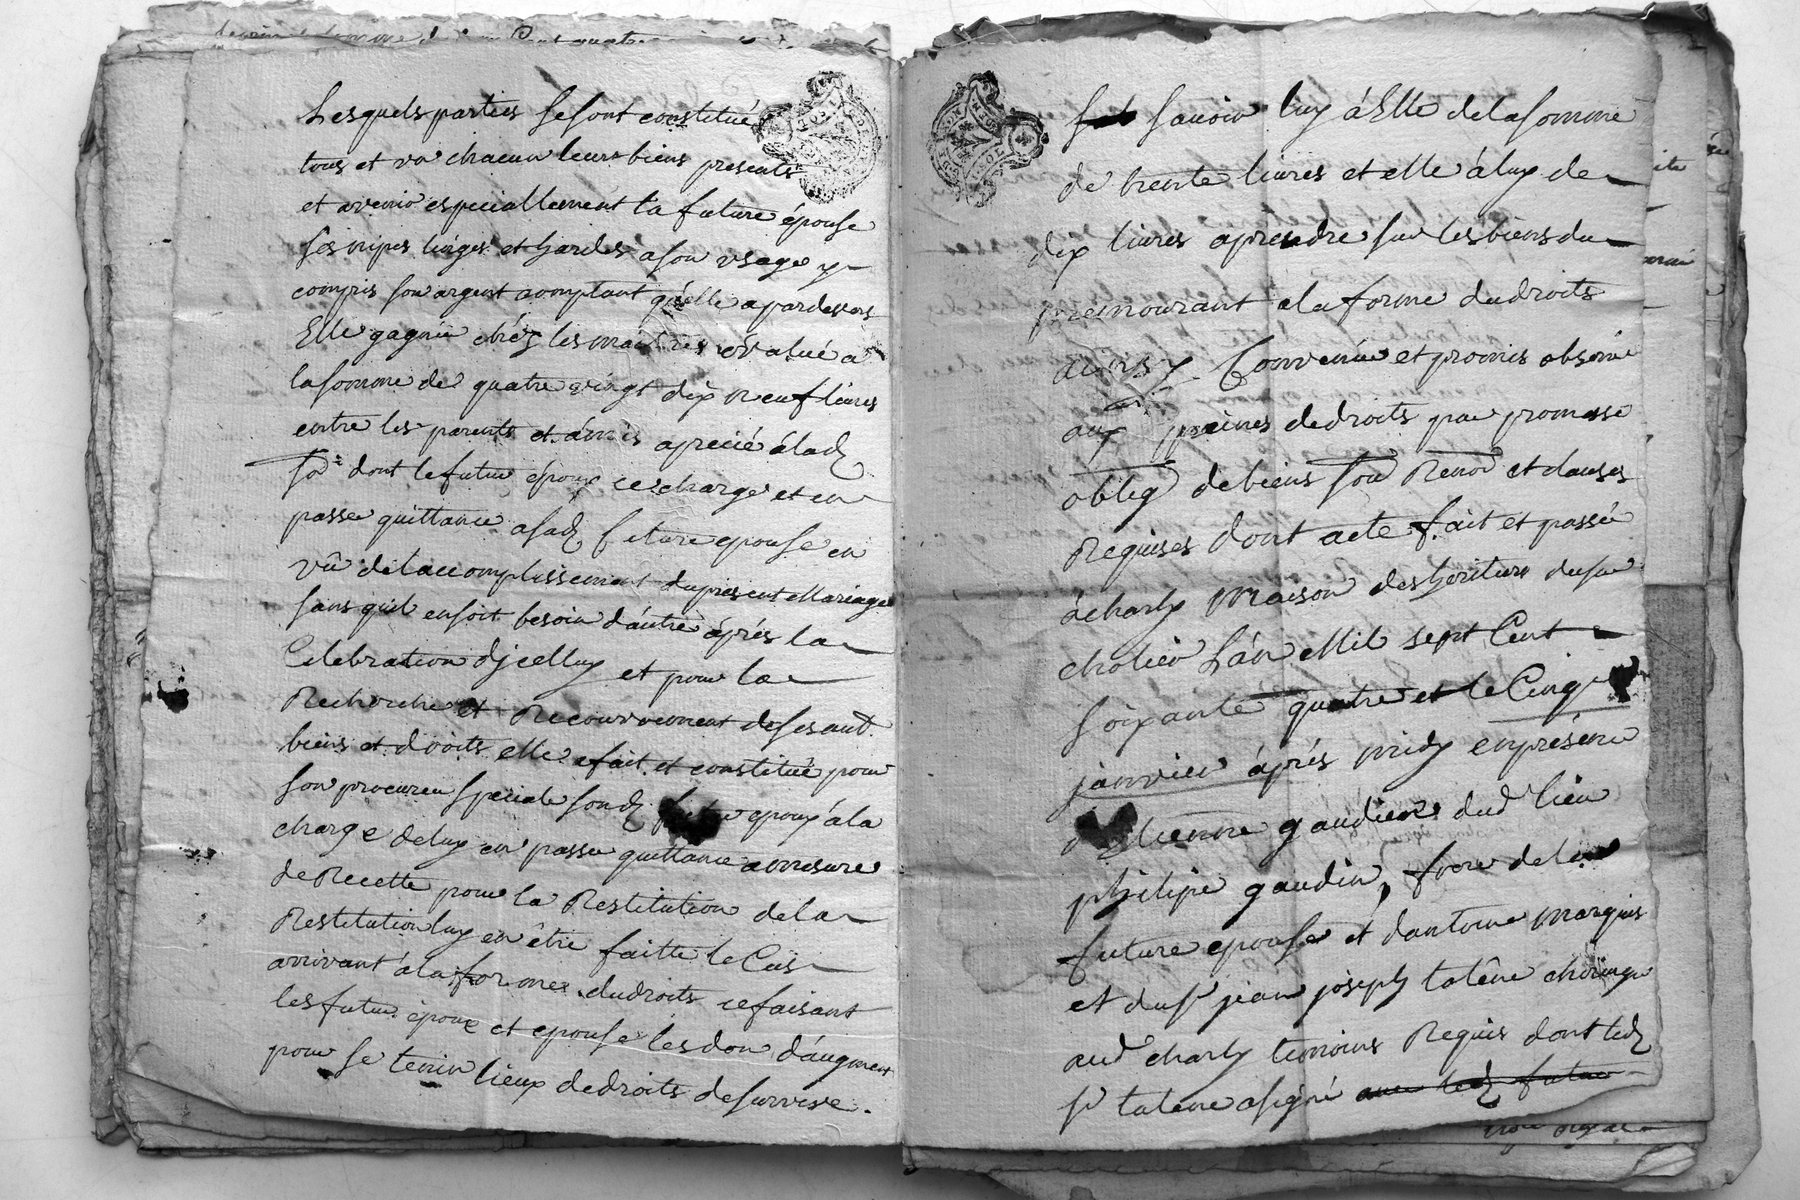 Lesquels parties se sont constitué
tous et un chacun leurs biens presents
et avenir especiallement la future épouse
ses nipes linges et hardes a son usage y
compris son argent comptant qu'elle a pardevers
Elle gagnée chéz les maitres évalué a
la somme de quatre vingt dix neuf livres
entre les parents et amis aprecié á lad
so.e dont le futur epoux se charge et en
passe quittance a sad future epouse en
vû de laccomplissement du present Mariage
sans quil en soit besoin d'autre áprés la
Celebration djcelluy et pour la
Recherche et Recouvrement de ses aut
biens et droits elle a fait et constitué pour
son procureur speciale sond futur epoux á la
charge de luy en passer quittance a mesure
de Recette pour la Restitution de la
Restitution luy en être faitte le Cas
arrivant á la forme du droits ce faisant
les futur époux et epouse les don d'augment
pour se tenir lieux de droits de survive.
sauoir luy á Elle de la somme
de trente livres et elle á luy de
dix livres a prendre sur les biens du
premourant a la forme du droits
ainsy Convenue et promis observé
aux peines de droits par promesse
oblig de biens sou Renon et clauses
Requises dont acte fait et passé
á charly maison des heritiers du sr
cholier Lán Mil sept Cent
soixante quatre et le Cinq
janvier áprés midy en présence
d'Etienne gaudier dud lieu
philipe gaudin, frere de la
future epouse et dantoine marquis
et du sr jean joseph talêne
aud charly temoins Requis dont led
sr talene a signé avec led futur